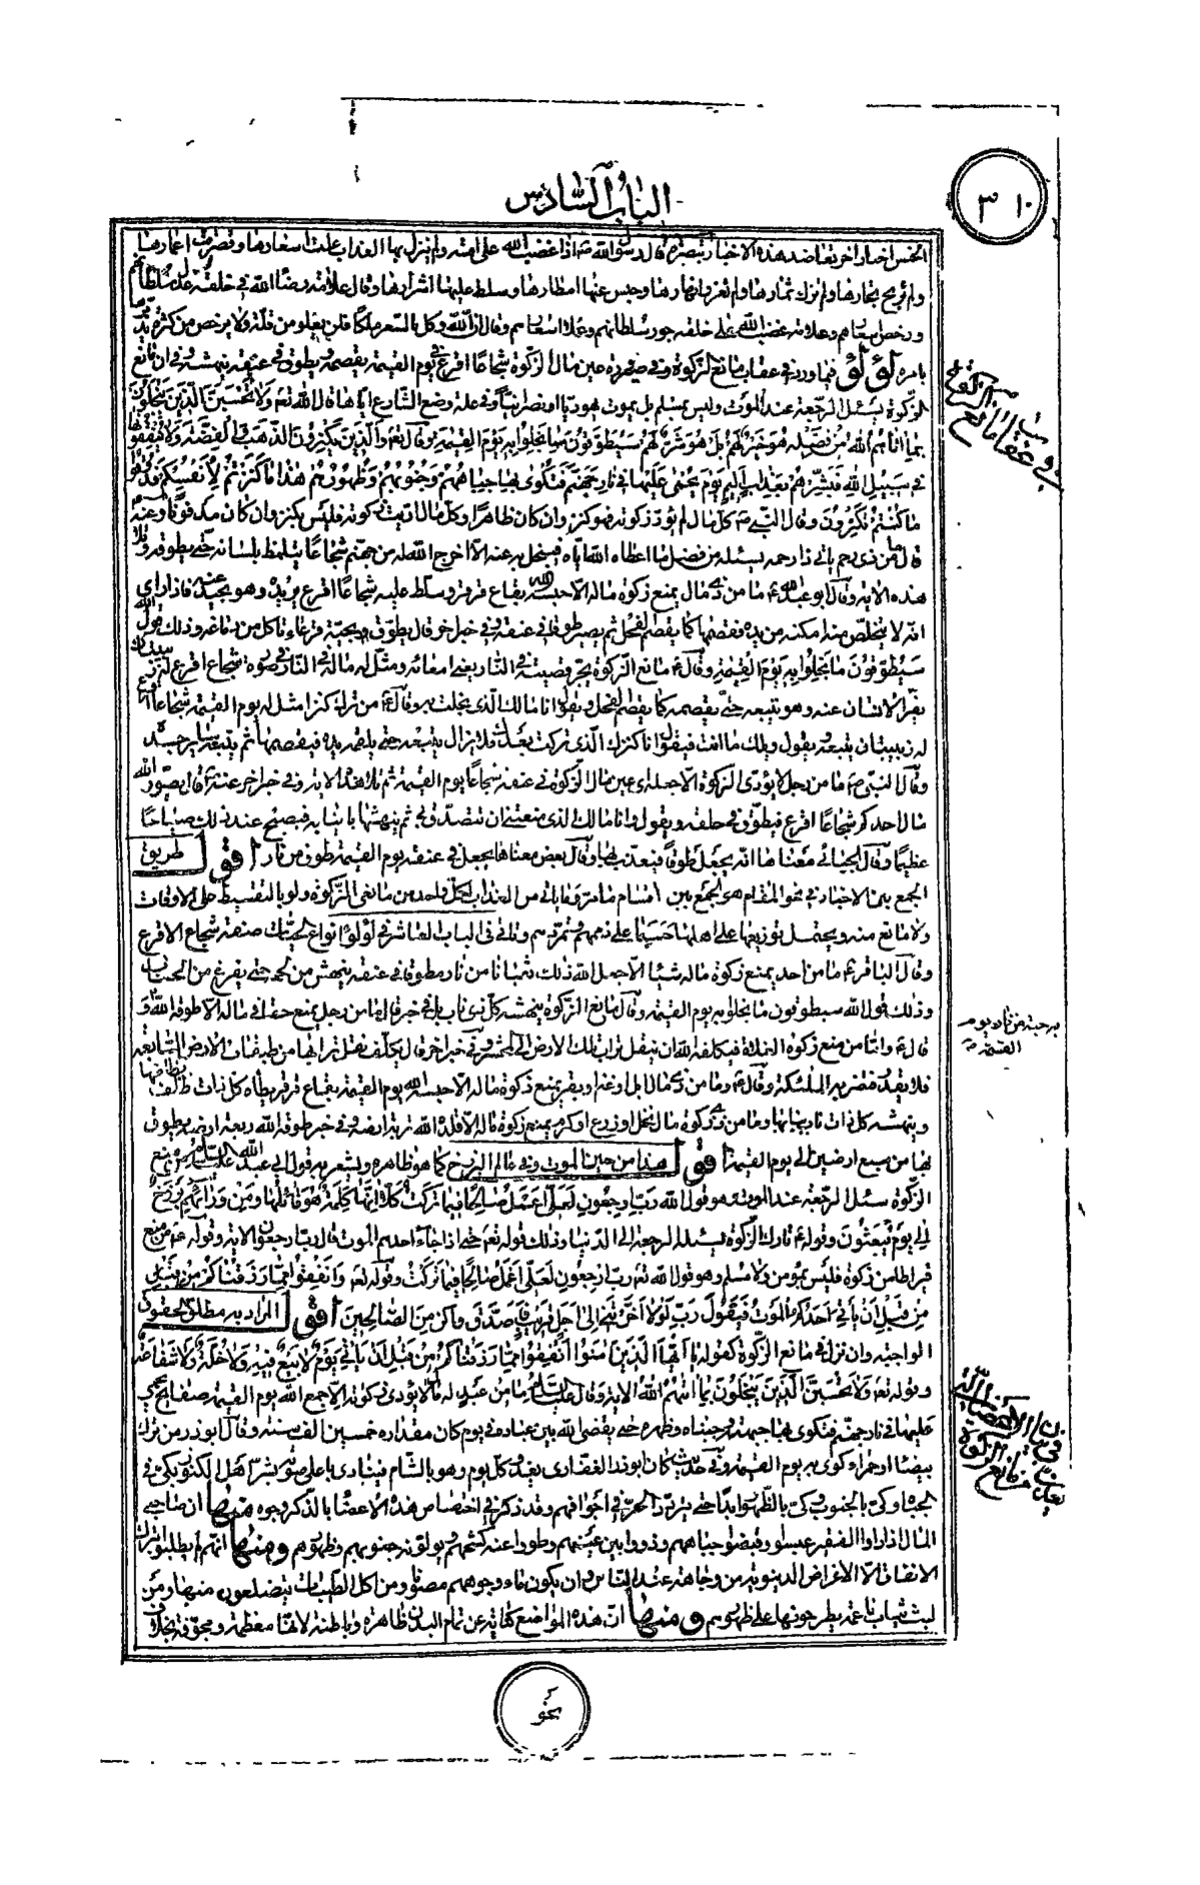 ٣١٠
الباب السادس
الخمس اخبار اخر تعاضد هذه الاخبار تبصرة قال رسول الله ص اذا غضب الله على امة ولم ينزل بها العذاب غلت اسعارها وقصرت اعمارها
ولم تربح تجارها ولم تزك ثمارها ولم تغزر انهارها وحبس عنها امطارها وسلط عليها اشرارها وقال علامة رضا الله في خلقه عدل سلطانهم
ورخص اسعارهم وعلامة غضب الله على خلقه جور سلطانهم وغلاء اسعارهم وقال ان الله وكل بالسعر ملكا فلن يغلو من قلة ولا يرخص من كثرة يدبره
بامره لؤلؤ فيما ورد في عقاب مانع الزكوة وفي صيرورة عين مال الزكوة شجاعا اقرع في يوم القيمة يقصمه ويطوق في عنقه ينهشه وان مانع
الزكوة يسئل الرجعة عند الموت وليس بمسلم بل يموت يهوديا او نصرانيا وفي علة وضع الشارع اياها قال الله تعالى وَلا يَحْسَبَنَّ الَّذينَ يَبْخَلُونَ
بِما اتاهُمُ اللهُ مِنْ فَضْلِه هُوَ خَيْرًا لَهُمْ بَلْ هُوَ شَرٌّ لَهُمْ سَيُطَوَّقُونَ ما بَخِلُوا بِه يَوْمَ القِيمَةِ وقال تعالى وَالَّذينَ يَكْنِزُونَ الذَّهَبَ وَالفِضَّةَ وَلا يُنْفِقُونَها
في سَبيلِ اللهِ فَبَشِّرْهُمْ بِعَذابٍ اَليمٍ يَوْمَ يُحْمى عَلَيْها في نارِ جَهَنَّمَ فَتُكْوى بِها جِباهُهُمْ وَجُنُوبُهُمْ وَظُهُورُهُمْ هذا ما كَنَزْتُمْ لِاَنْفُسِكُمْ فَذُوقُوا
ما كُنْتُمْ تَكْنِزُونَ وقال النبي ص كل مال لم تؤد زكوته فهو كنز وان كان ظاهرا وكل مال اديت زكوته فليس بكنز وان كان مدفونا وعنه
قال ما من ذي رحم ياتي ذا رحمه يسئله من فضل ما اعطاه الله اياه فيبخل به عنه الا اخرج الله له من جهنم شجاعا يتلمظ بلسانه حتى يطوقه وتلا
هذه الاية وقال ابو عبد الله ع ما من ذي مال يمنع زكوة ماله الا حبسه الله بقاع قرقر وسلط عليه شجاعا اقرع يريده وهو يحيد عنه فاذا راى
انه لا يتخلص منه امكنه من يده فقضمها كما يقضم الفحل ثم يصير طوقا في عنقه وفي خبر اخر قال يطوق بحية قرعاء تاكل من دماغه وذلك قول الله
سيطوقون ما بخلوا به يوم القيمة وقال ع مانع الزكوة يجر قصبه في النار يعني امعائه ومثل له ماله في النار في صورة شجاع اقرع له زبيبتان
يفر الانسان عنه وهو يتبعه حتى يقصمه كما يقصم الفحل ويقول انا مالك الذي بخلت به وقال ع من ترك كنزا مثل له يوم القيمة شجاعا اقرع
له زبيبتان يتبعه ويقول ويلك ما انت فيقول انا كنزك الذي تركت بعدك فلا يزال يتبعه حتى يلقمه يده فيقصمها ثم يتبعه سائر جسده
وقال النبي ص ما من رجل لا يؤدي الزكوة الا جعل له عين مال الزكوة في عنقه شجاعا يوم القيمة ثم تلا هذه الاية وفي خبر اخر عنه ص قال يصور الله
مال احدكم شجاعا اقرع فيطوق في حلقه ويقول انا مالك الذي منعتني ان تتصدق بي ثم ينهشها بانيابه فيصيح عند ذلك صياحا
عظيما وقال الجبائي معناها انه يجعل طوقا فيعذب بها وقال بعض معناها يجعل في عنقه يوم القيمة طوق من نار اقول طريق
الجمع بين الاخبار في نحو المقام هو الجمع بين اقسام ما مر وما ياتي من العذاب لكل واحد من مانعي الزكوة ولو بالتقسيط على الاوقات
وقال الباقر ع ما من احد يمنع زكوة ماله شيئا الا جعل الله ذلك ثعبانا من نار مطوقا في عنقه ينهش من لحمه حتى يفرغ من الحساب
وذلك قول الله سيطوقون ما بخلوا به يوم القيمة وقال مانع الزكوة ينهشه كل ذي ناب بنابه في خبر قال ما من رجل يمنع حقا في ماله الا طوقه الله
به حية من نار يوم
القيمة
فلا يقدر فتضربه الملئكة وقال ع وما من ذي مال ابل او غنم او بقر يمنع زكوة ماله الا حبسه الله يوم القيمة بقاع قرقر يطاه كل ذات ظلف بظلفها
وينهشه كل ذات ناب بنابها وما من ذي زكوة مال نخل او زرع او كرم يمنع زكوة ماله الا قلده الله تربة ارضه وفي خبر طوقه الله ريعة ارضه يطوق
بها من سبع ارضين الى يوم القيمة اقول هذا من حين الموت وفي عالم البرزخ كما هو ظاهره ويشعر به قول ابي عبد الله عليه السلام من منع
الزكوة سئل الرجعة عند الموت وهو قول الله رب ارجعون لعلي اعمل صالحا فيما تركت كلا انها كلمة هو قائلها ومن ورائهم برزخ
الى يوم يبعثون وقوله ع تارك الزكوة يسئل الرجعة الى الدنيا وذلك قوله تعالى حتى اذا جاء احدهم الموت قال رب ارجعون الاية وقوله ع من منع
قيراطا من زكوة فليس بمؤمن ولا مسلم وهو قول الله تعالى رب ارجعون لعلي اعمل صالحا فيما تركت وقوله تعالى وانفقوا مما رزقناكم من قبل
من قبل ان ياتي احدكم الموت فيقول رب لولا اخرتني الى اجل قريب فاصدق واكن من الصالحين اقول المراد به مطلق الحقوق
الواجبة وان نزل في مانع الزكوة كقوله يا ايها الذين امنوا انفقوا مما رزقناكم من قبل ان ياتي يوم لا بيع فيه ولا خلة ولا شفاعة
وقوله تعالى ولا تحسبن الذين يبخلون بما اتيهم الله الاية وقال عليه السلام ما من عبد له مال لا يؤدي زكوته الا جمع الله يوم القيمة صفايح يحمى
عليها في نار جهنم فتكوى بها جبهته وجنباه وظهره حتى يقضى الله بين عباده في يوم كان مقداره خمسين الف سنة وقال ابو ذر من ترك
بيضاء او حمراء كوي به يوم القيمة وفي حديث كان ابو ذر الغفاري يغدو كل يوم وهو بالشام فينادي باعلى صوته بشر اهل الكنوز بكي في
الجباه وكي بالجنوب وكي بالظهور ابدا حتى يتردد الحر في اجوافهم وقد ذكر في اختصاص هذه الاعضاء بالذكر وجوه منها ان صاحب
المال اذا راوا الفقير عبسوا وقبضوا جباههم وزووا بين عينهم وطووا عنه كشحهم ويولونه جنوبهم وظهورهم ومنها انهم لم يطلبوا بترك
الانفاق الا الاغراض الدنيوية من وجاهة عند الناس وان يكون ماء وجوههم مصونا ومن اكل الطيبات يتضلعون منها ومن
لبس ثياب ناعمة يطرحونها على ظهورهم ومنها ان هذه المواضع كناية عن تمام البدن ظاهره وباطنه لانها معظمه ومجوفة بخلاف
نحو